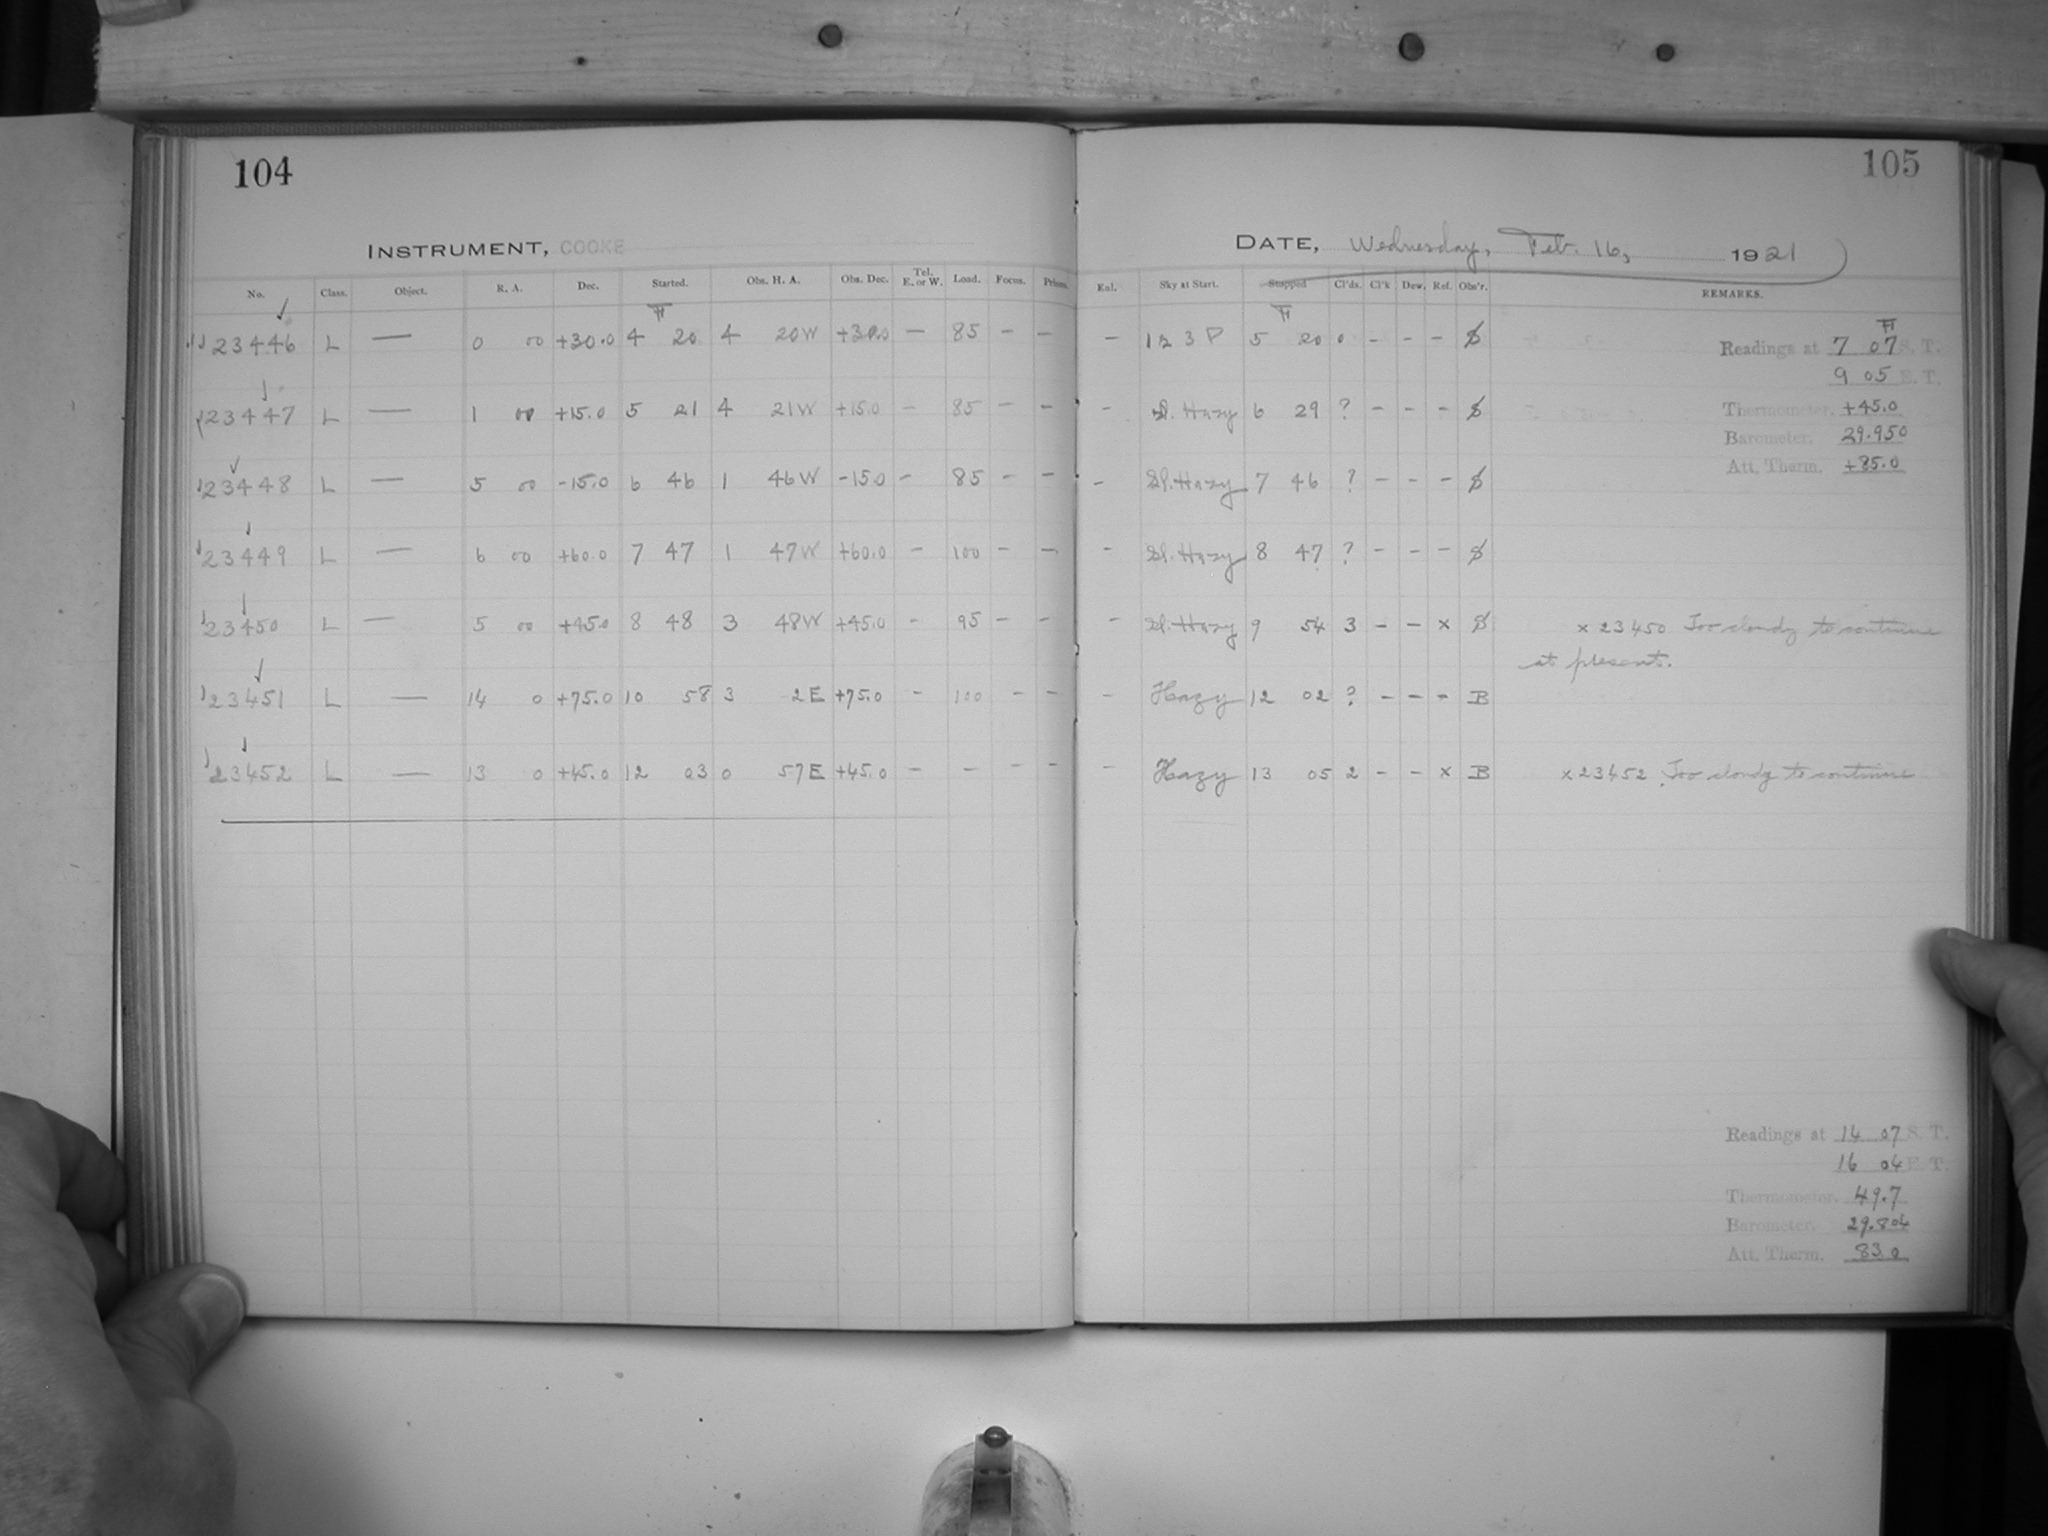 104
INSTRUMENT, COOKE
No. Class. Object. R. A. Dec. Started. Obs. H. A. Obs. Dec. Tel. E. or W. Load. Focus. Prisms.
23446 L — 0 00 +30.0 4 20 4 20W +30.0 — 85 – –
23447 L — 1 00 +15.0 5 21 4 21W +15.0 – 85 – –
23448 L — 5 00 -15.0 6 46 1 46W -15.0 – 85 – –
23449 L — 6 00 +60.0 7 47 1 47W +60.0 – 100 – –
23450 L — 5 00 +45.0 8 48 3 48W +45.0 – 95 – –
23451 L — 14 0 +75.0 10 58 3 2E +75.0 – 100 – –
23452 L — 13 0 +45.0 12 03 0 57E +45.0 – – – –
105
DATE, Wednesday, Feb. 16, 1921
Enl. Sky at Start. Stopped Cl'ds. Cl'k Dew. Ref. Obs'r. REMARKS.
– 3 P 5 20 0 – – –
– Sl. Hazy 6 29 ? – – –
– Sl. Hazy 7 46 ? – – –
– Sl. Hazy 8 47 ? – – –
– Sl. Hazy 9 54 3 – – x x 23450 Too cloudy to continue
at present.
– Hazy 12 02 ? – – – B
– Hazy 13 05 2 – – x B x 23452 Too cloudy to continue
Readings at 7 07 S. T.
9 05 E. T.
Thermometer. +45.0
Barometer. 29.950
Att. Therm. +85.0
Readings at 14 07 S. T.
16 04 E. T.
Thermometer. 49.7
Barometer. 29.804
Att. Therm. 83.0